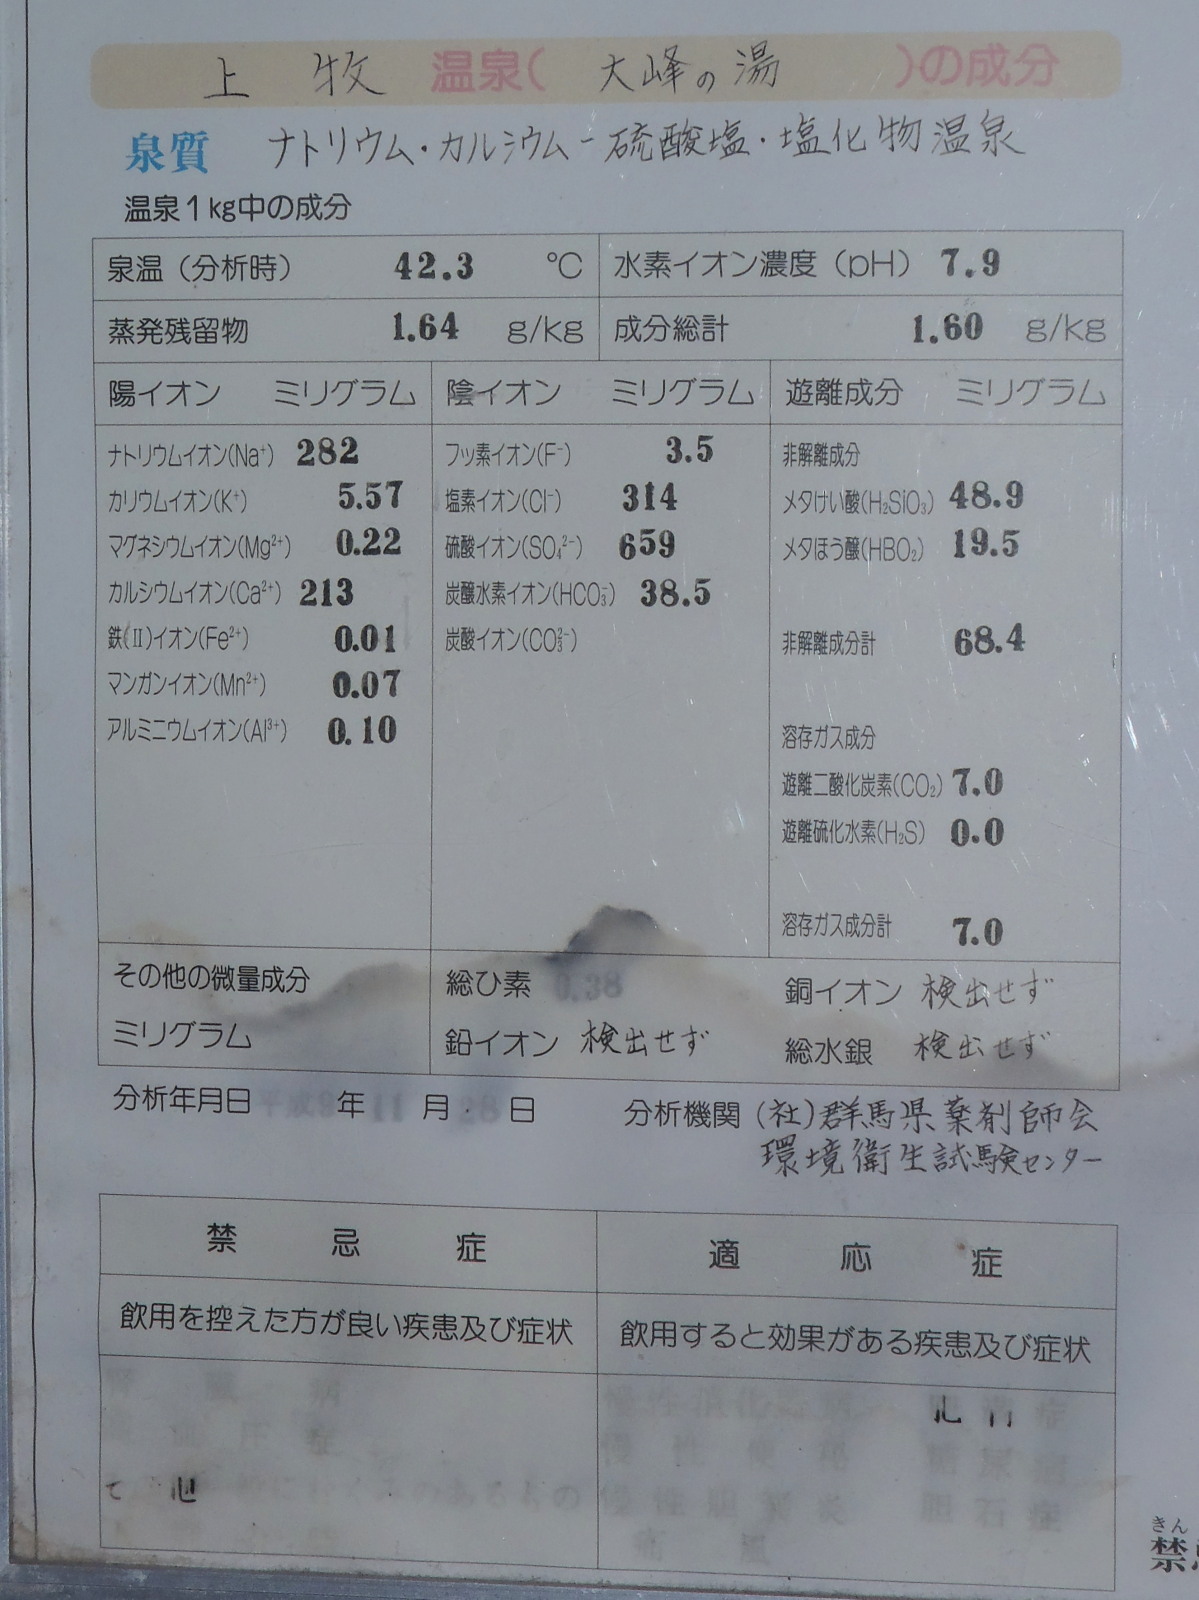 上牧温泉(大峰の湯)の成分
泉質 ナトリウム・カルシウム-硫酸塩・塩化物温泉
温泉1kg中の成分
泉温(分析時) 42.3 ℃ 水素イオン濃度(pH) 7.9
蒸発残留物 1.64 g/kg 成分総計 1.60 g/kg
陽イオン ミリグラム 陰イオン ミリグラム 遊離成分 ミリグラム
ナトリウムイオン(Na⁺) 282
カリウムイオン(K⁺) 5.57
マグネシウムイオン(Mg²⁺) 0.22
カルシウムイオン(Ca²⁺) 213
鉄(Ⅱ)イオン(Fe²⁺) 0.01
マンガンイオン(Mn²⁺) 0.07
アルミニウムイオン(Al³⁺) 0.10
フッ素イオン(F⁻) 3.5
塩素イオン(Cl⁻) 314
硫酸イオン(SO₄²⁻) 659
炭酸水素イオン(HCO₃⁻) 38.5
炭酸イオン(CO₃²⁻)
非解離成分
メタけい酸(H₂SiO₃) 48.9
メタほう酸(HBO₂) 19.5
非解離成分計 68.4
溶存ガス成分
遊離二酸化炭素(CO₂) 7.0
遊離硫化水素(H₂S) 0.0
溶存ガス成分計 7.0
その他の微量成分
ミリグラム
総ひ素 0.38
鉛イオン 検出せず
銅イオン 検出せず
総水銀 検出せず
分析年月日 平成9年11月28日 分析機関 (社)群馬県薬剤師会
環境衛生試験センター
禁忌症
飲用を控えた方が良い疾患及び症状
腎臓病
高血圧症
適応症
飲用すると効果がある疾患及び症状
慢性消化器病
慢性便秘
慢性胆嚢炎
痛風
肥満症
糖尿病
胆石症
きん
禁